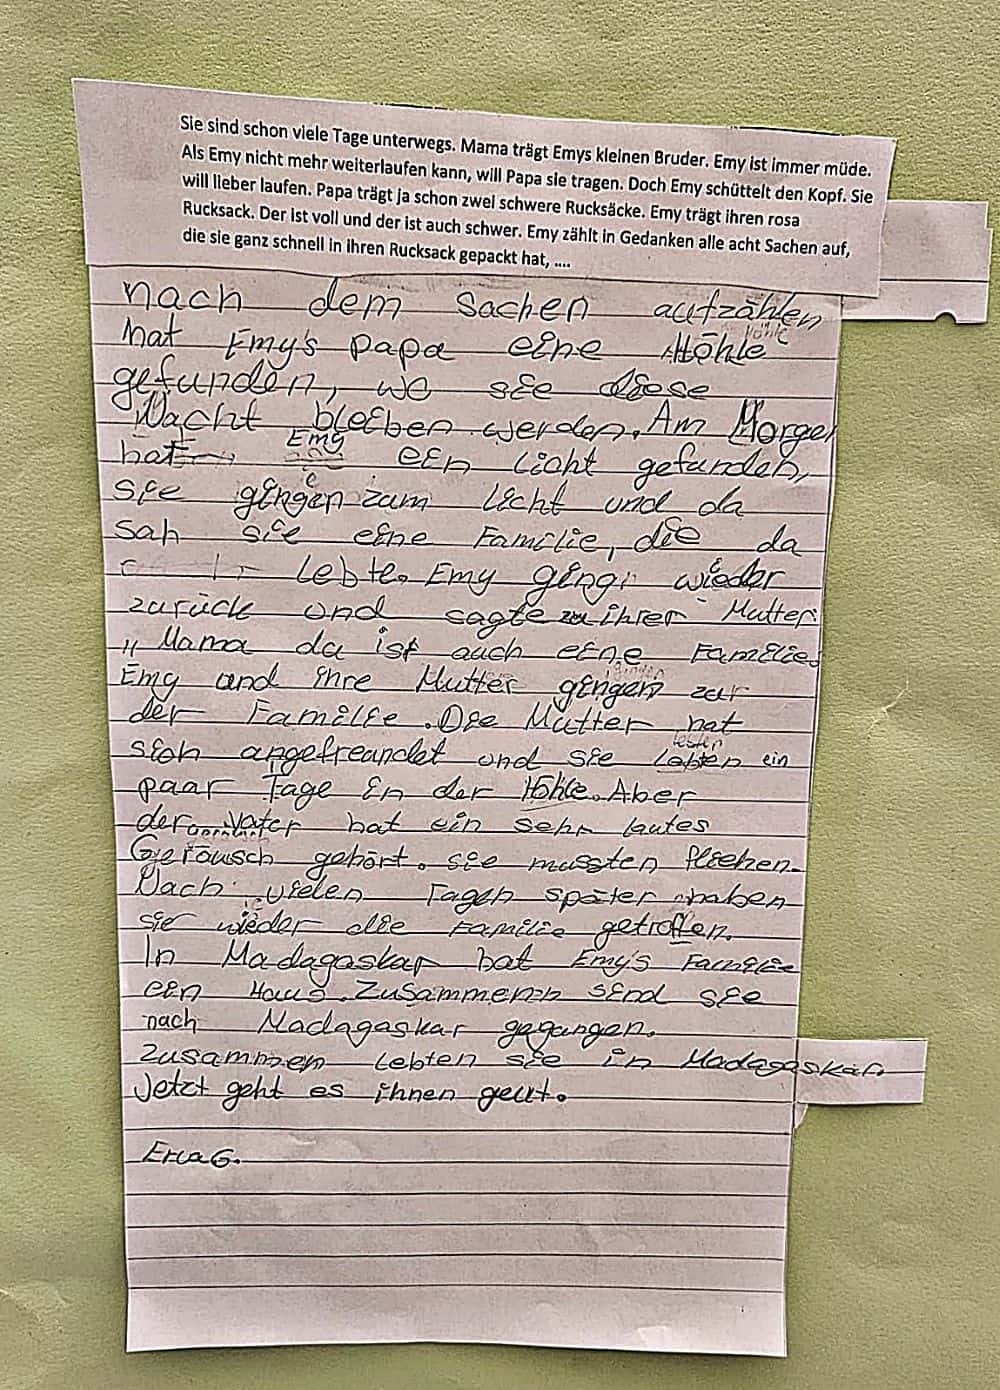 Sie sind schon viele Tage unterwegs. Mama trägt Emys kleinen Bruder. Emy ist immer müde.
Als Emy nicht mehr weiterlaufen kann, will Papa sie tragen. Doch Emy schüttelt den Kopf. Sie
will lieber laufen. Papa trägt ja schon zwei schwere Rucksäcke. Emy trägt ihren rosa
Rucksack. Der ist voll und der ist auch schwer. Emy zählt in Gedanken alle acht Sachen auf,
die sie ganz schnell in ihren Rucksack gepackt hat, ....
nach dem Sachen aufzählen
hat Emy's papa eine Höhle
gefunden, wo sie diese
Nacht bleiben werden. Am Morgen
hat Emy ein licht gefunden,
sie gingen zum licht und da
sah sie eine Familie, die da
lebte. Emy ging wieder
zurück und sagte zu ihrer Mutter:
"Mama da ist auch eine Familie.
Emy und ihre Mutter gingen zur
der Familie. Die Mutter hat
sich angefreundet und sie lebten ein
paar Tage in der Höhle. Aber
der Vater hat ein sehr lautes
Geräusch gehört. sie mussten fliehen.
Nach vielen Tagen später haben
sie wieder die Familie getroffen.
In Madagaskar hat Emy's Familie
ein Haus. Zusammen sind sie
nach Madagaskar gegangen.
Zusammen lebten sie in Madagaskar.
Jetzt geht es ihnen gut.